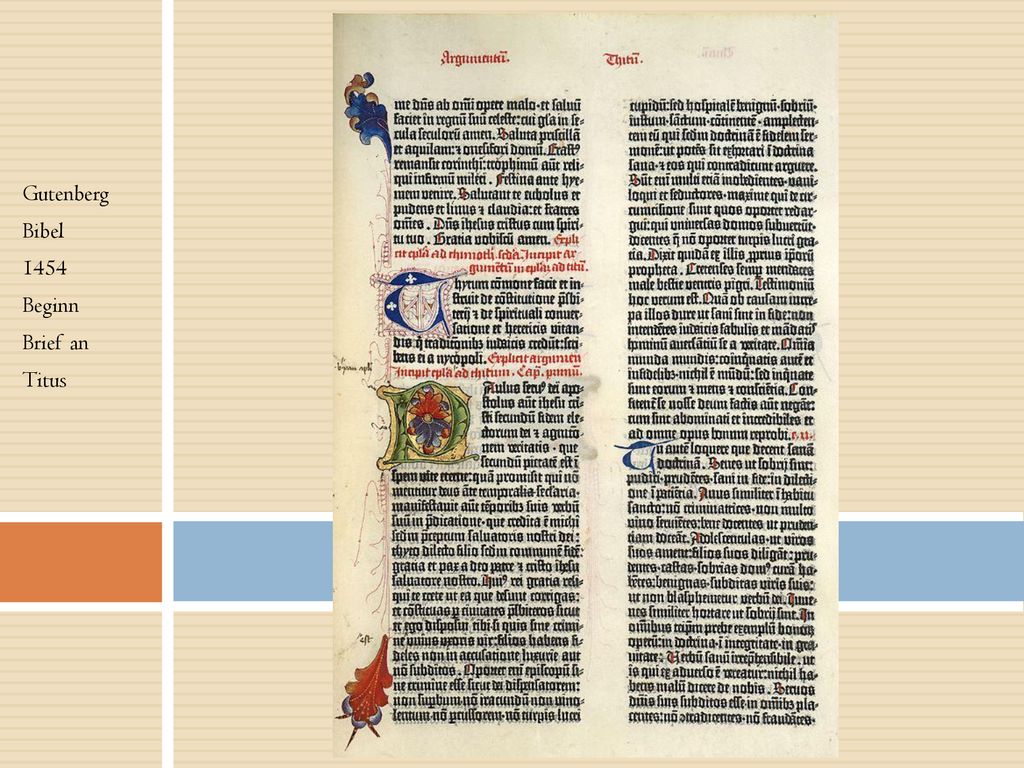 Gutenberg
Bibel
1454
Beginn
Brief an
Titus
Argumentū.
Thitū.
me dn̄s ab om̄i opere malo·et saluū
faciet in regnū suū celeste:cui gl̄a in se-
cula seculorū amen. Saluta priscillā
et aquilam:⁊ onesifori domū. Erastꝰ
remansit corinthi:trophimū aūt reli-
qui infirmū mileti. Festina ante hye-
mem venire. Salutant te eubolus et
pudens et linus ⁊ claudia:et fratres
om̄es. Dn̄s ihesus cristus cum spiri-
tu tuo. Gratia vobiscū amen. Expli-
cit ep̄la ad thimoth. sc̄da. Incipit ar-
gumētū in ep̄lā ad titū.
Thytum cōmone facit et in-
struit de cōstitutione p̄sbi-
terij ⁊ de spirituali conuer-
satione et hereticis vitan-
dis q̄ traditionib̄ iudaicis credūt:scri-
bens ei a nycopoli. Explicit argumen
Incipit ep̄la ad thitum. Cap. primū.
Paulus seruꝰ dei apo-
stolus aūt ihesu cri-
sti secundū fidem ele-
ctorum dei ⁊ agnicō-
nem veritatis · que
secundū pietatē est ī
spem vite eterne:quā promisit qui nō
mentitur deus āte temporalia secularia·
manifestauit aūt tēporib̄ suis verbū
suū in p̄dicatione·que credita ē michi
sc̄dm p̄ceptum saluatoris nostri dei:
thyto dilecto filio sc̄dm communē fidē:
gracia et pax a deo patre ⁊ cristo ihesu
saluatore nostro. Huiꝰ rei gratia reli-
qui te crete ut ea que desunt corrigas:
et cōstituas p̱ ciuitates p̄sbiteros sicut
et ego disposui tibi·si quis sine crimi-
ne vnius vxoris vir:filios habens fi-
deles non in accusatione luxurie aut
nō subditos. Oportet eni episcopū si-
ne crimine esse sicut dei dispēsatorem:
non supbum·nō iracundū·non vino-
lentum·nō p̱cussorem·nō turpis lucri
cupidū:sed hospitalē·benignū·sobriū·
iustum·sāctum·cōtinentē·amplecten-
tem eū qui sc̄dm doctrinā ē fidelem ser-
monē:ut potēs sit exhortari ī doctrina
sana·⁊ eos qui contradicunt arguere.
Sūt enī multi etiā inobedientes·vani-
loqui et seductores·maxime qui de cir-
cumcisione sunt quos oportet redar-
gui:qui vniuersas domos subuertūt·
docentes q̄ nō oportet turpis lucri gra-
tia. Dixit quidā ex illis proprius ip̄orū
propheta. Cretenses semp̱ mendaces
male bestie ventris pigri. Testimoniū
hoc verum est. Quā ob causam incre-
pa illos dure ut sani sint in fide:non
intendētes iudaicis fabulis et mādatis
hominū auersātiū se a veritate. Om̄ia
munda mundis:coinq̄natis aūt et
infidelib̄·nichil ē mūdū:sed inq̄nate
sunt eorum ⁊ mens ⁊ consciētia. Con-
fitent̄ se nosse deum factis aūt negāt:
cum sint abominati et incredibiles et
ad omne opus bonum reprobi. c. ii.
Tu autē loquere que decent sanā
doctrinā. Senes ut sobrij sint:
pudici·prudētes·sani in fide:in dilecti-
one ī patiētia. Anus similiter ī habitu
sancto:nō criminatrices·non multo
vino seruiētes:bene docentes ut pruden-
tiam doceāt. Adolescentulas·ut viros
suos ament:filios suos diligāt:pru-
dentes·castas·sobrias·domꝰ curā ha-
bētes:benignas·subditas viris suis:
ut non blasphemetur verbū dei. Iuue-
nes similiter hortare ut sobrij sint. In
omībus teip̄m prebe exemplū bonorū
operū:in doctrina·ī integritate·in gra-
uitate. Verbū sanū irrep̄hēsibile·ut
is qui ex aduerso ē vereatur:nichil ha-
bens malū dicere de nobis. Seruos
dn̄is suis subditos esse·in om̄ib̄ pla-
centes:nō ɔtradicentes·nō fraudātes·